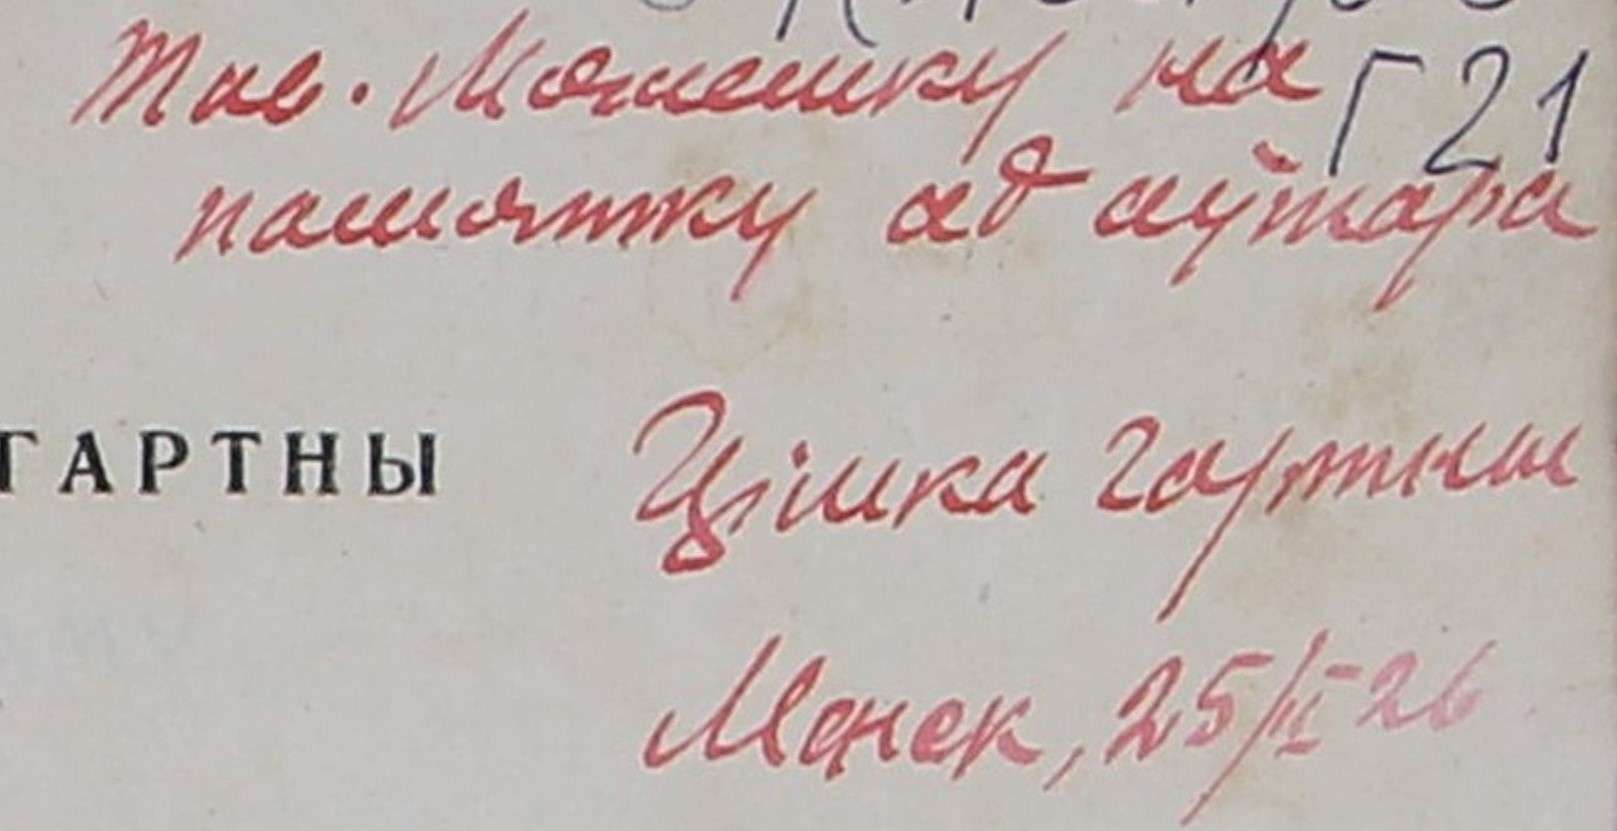 Тав. на Г21
памятку ад аўтара
ГАРТНЫ Цішка Гартны
Менск, 25/II 26